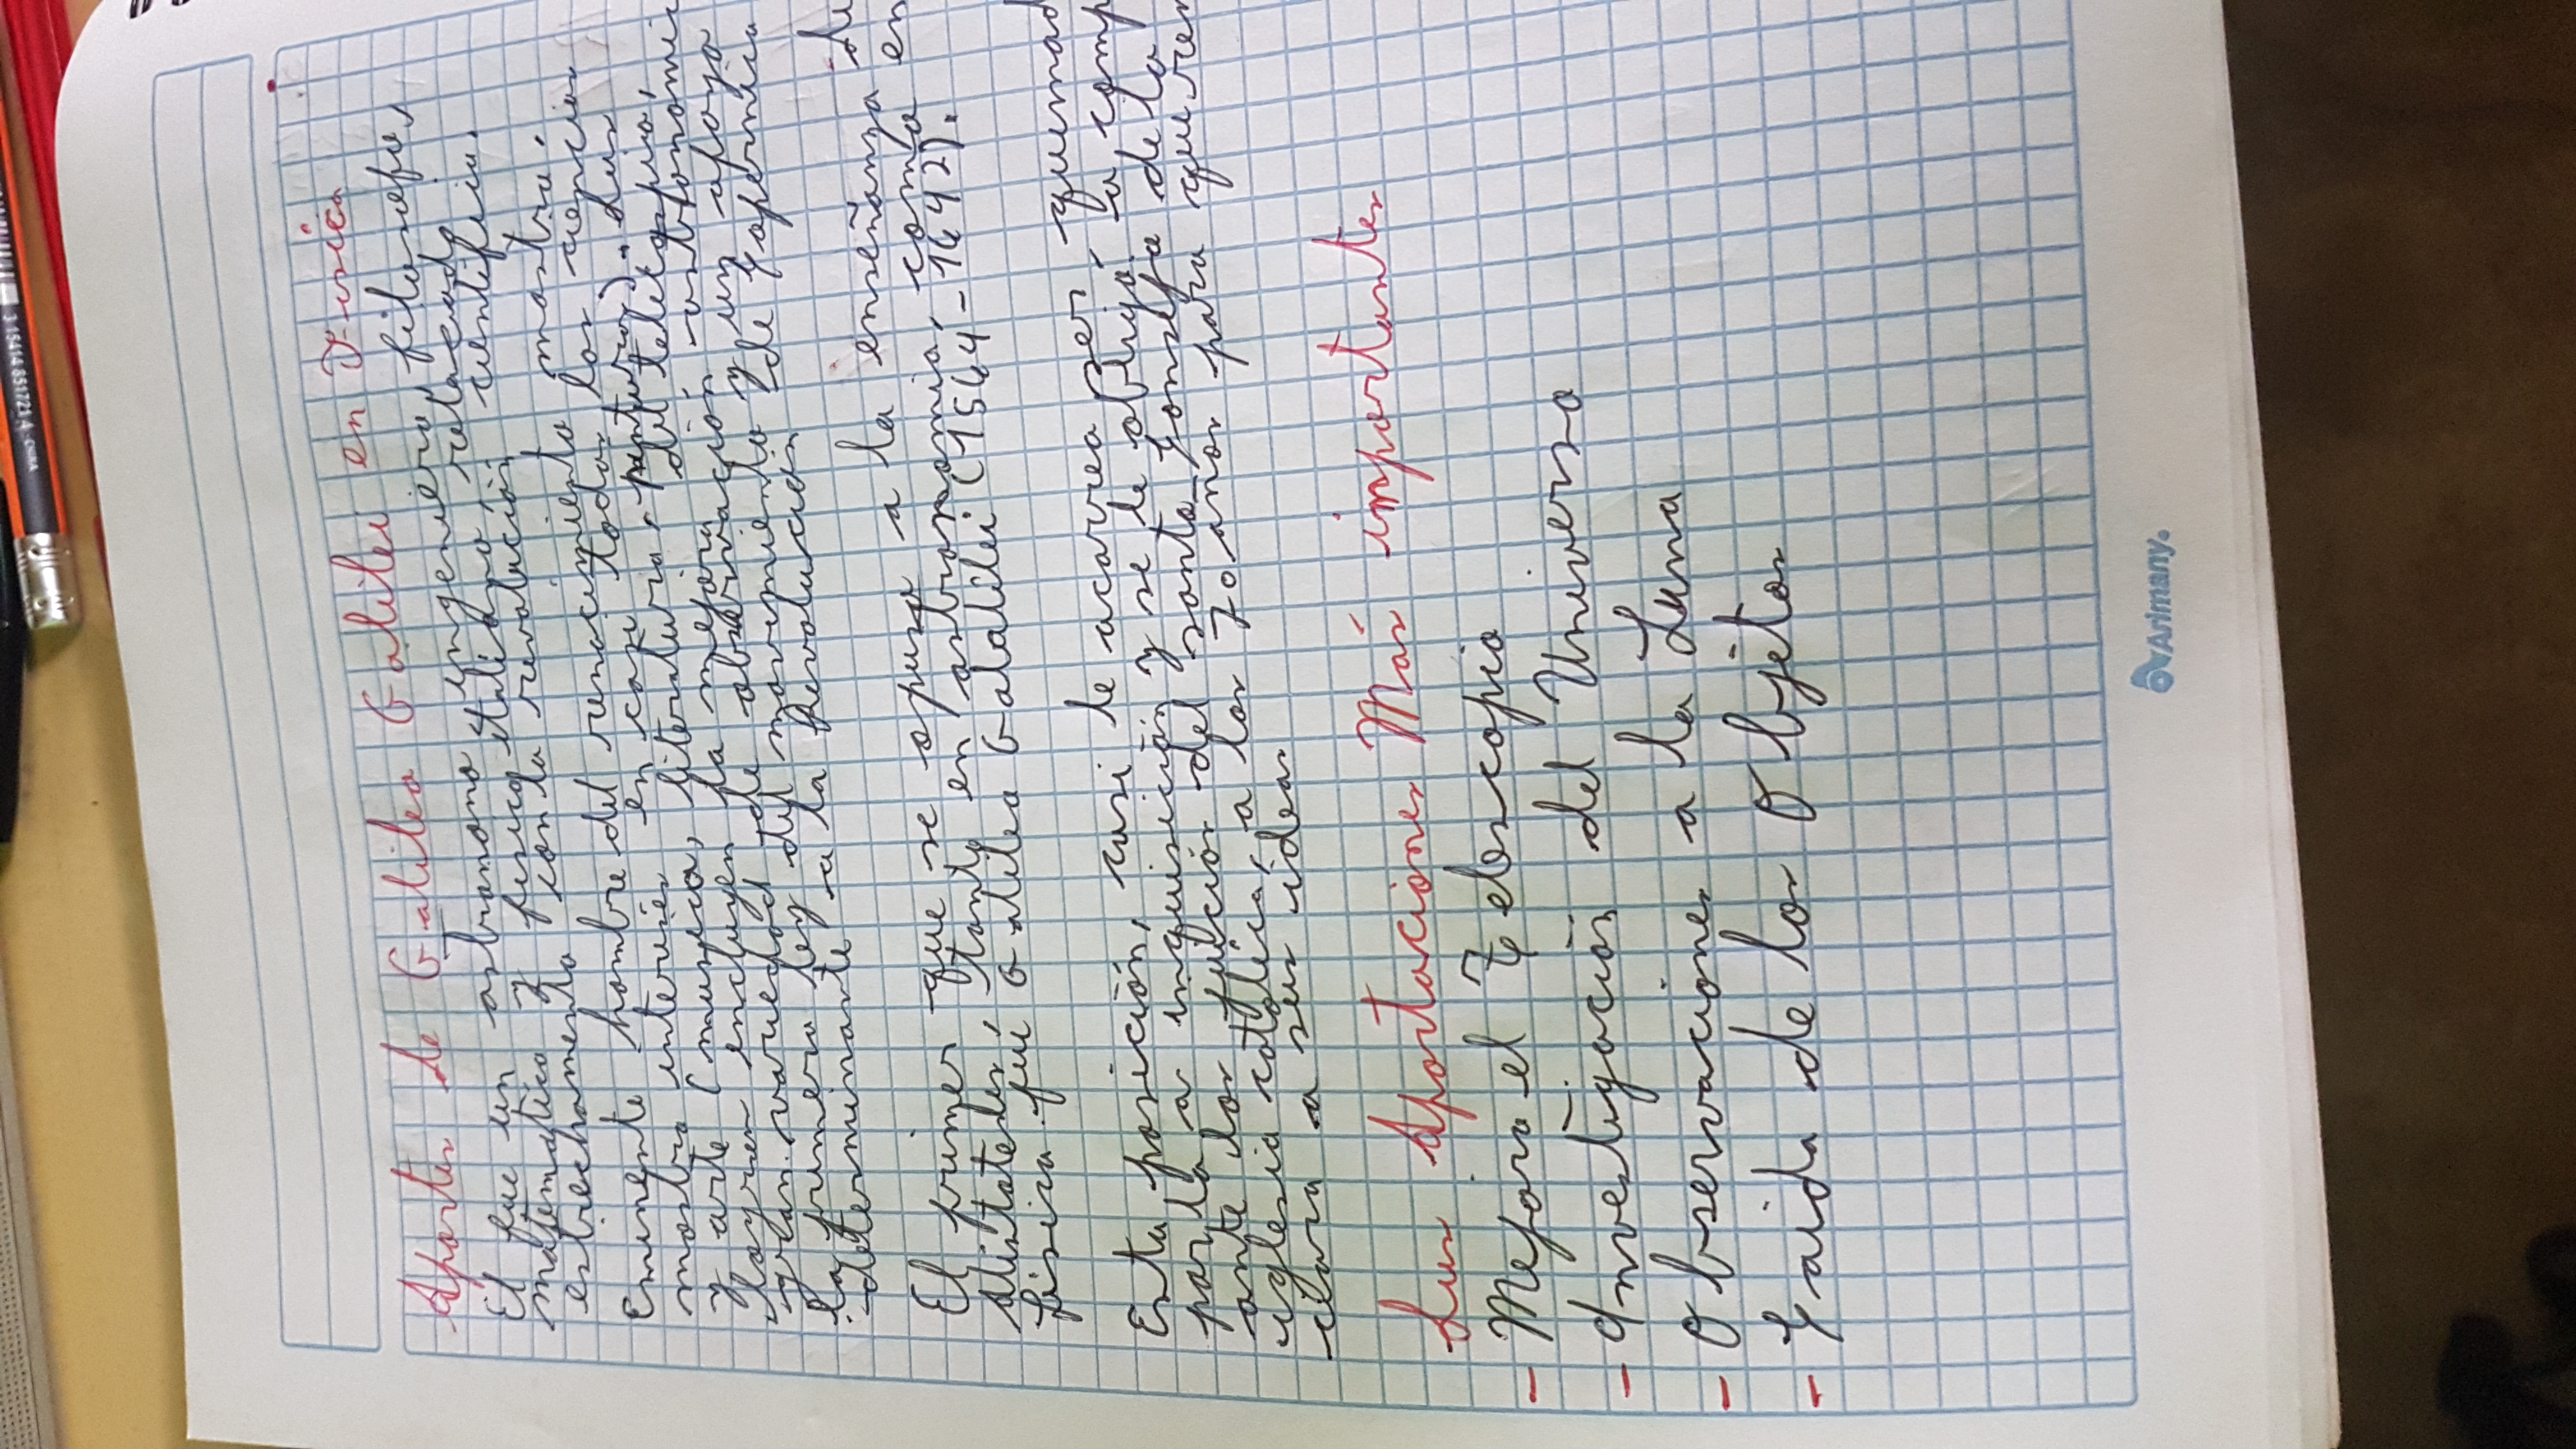 Aportes de Galileo Galilei en Física
El fue un astronomo yngeniero filosofos
matematico y fisico italiano, relaciando
estrechamento con la revolución cientifica.
Eminente hombre del renacimiento mostró
mostro interies en casi todas las cencias
y arte (musica, literatura, pintura). Sus
logros incluyen la mejora del telescopio,
gran variedad de observación astronomi
la primera ley del movimiento y un apoyo
determinante a la Revolución de Copernico
El primer que se opuso a la enseñanza de
Alistateles, tanto en astronomia, como en
fisica fue Galileo Galailei (1564 - 1642).
Esta posición, casi le acarrea ser quemad
por la a inquisición y se le obligó a comp
ante los juicios del santo y consejo de la
iglesia catolica, a los 70 anos para que ren
clara a sus ideas
Sus Aportaciones Más importantes
- Mejora el Telescopio
- Investigación del Universo
- Observaciones a la Luna
- Caida de los Objetos
Arimany.
3 15414 851721 A CHINA